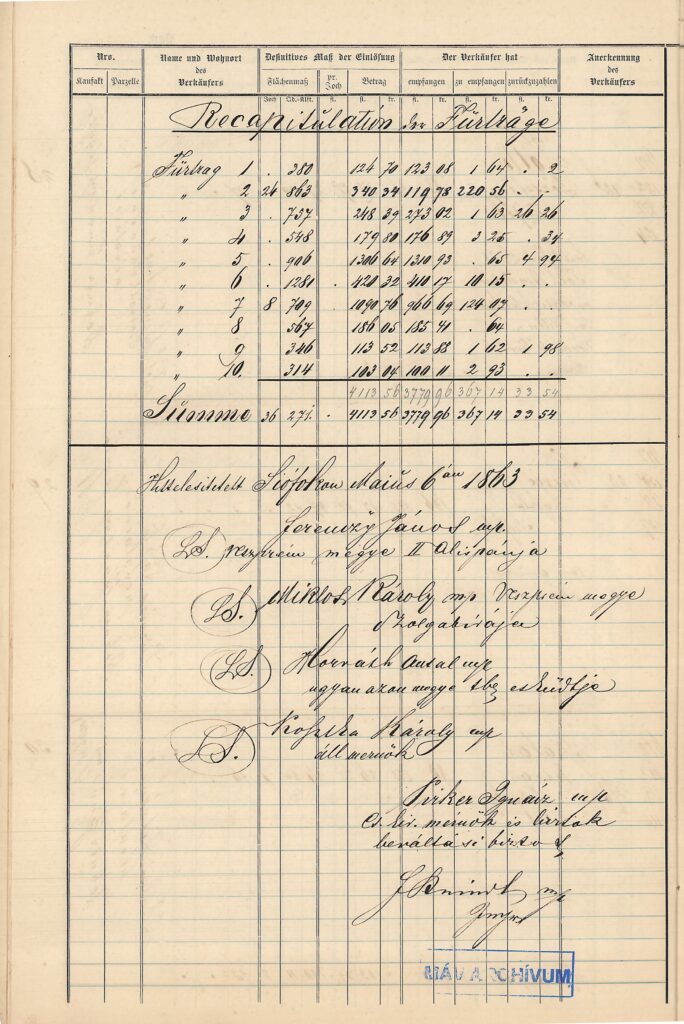 Nro. Name und Wohnort Definitives Maß der Einlösung Der Verkäufer hat Anerkennung
des des
Kaufakt Parzelle Verkäufers Flächenmaß pr. Joch Betrag empfangen zu empfangen zurückzuzahlen Verkäufers
Joch Qd.-Klft. fl. fl. kr. fl. kr. fl. kr. fl. kr.
Recapitulation der Fürträge
Fürtrag 1 . 380 124 70 123 08 1 64 . 2
" 2 24 863 340 34 119 78 220 56 . .
" 3 . 737 248 39 273 02 1 63 26 26
" 4 . 548 179 80 176 89 3 25 . 34
" 5 . 906 1306 64 1310 93 . 65 4 94
" 6 . 1281 . 420 32 410 17 10 15 . .
" 7 8 709 . 1090 76 966 69 124 07 . .
" 8 567 186 05 185 41 . 64
" 9 346 113 52 113 88 1 62 1 98
" 10. 314 103 04 100 11 2 93 . .
4113 56 3779 96 367 14 33 54
Summe 36 271. . 4113 56 3779 96 367 14 33 54
Hittelesitetelt Siófokon Maius 6án 1863
Ferenczy János mp.
L.S. veszprém megye II Alispánja
L.S. Miklos Károly mp Veszprém megye
Szolgabirája
L.S. Horváth Antal mp
ugyan azon megye tbz esküdtje
L.S. Károly mp
áll mernök
Pirker Ignácz mp
cs. kir. mérnök és birtok
beváltási biztos
mp
MÁV ARCHÍVUM